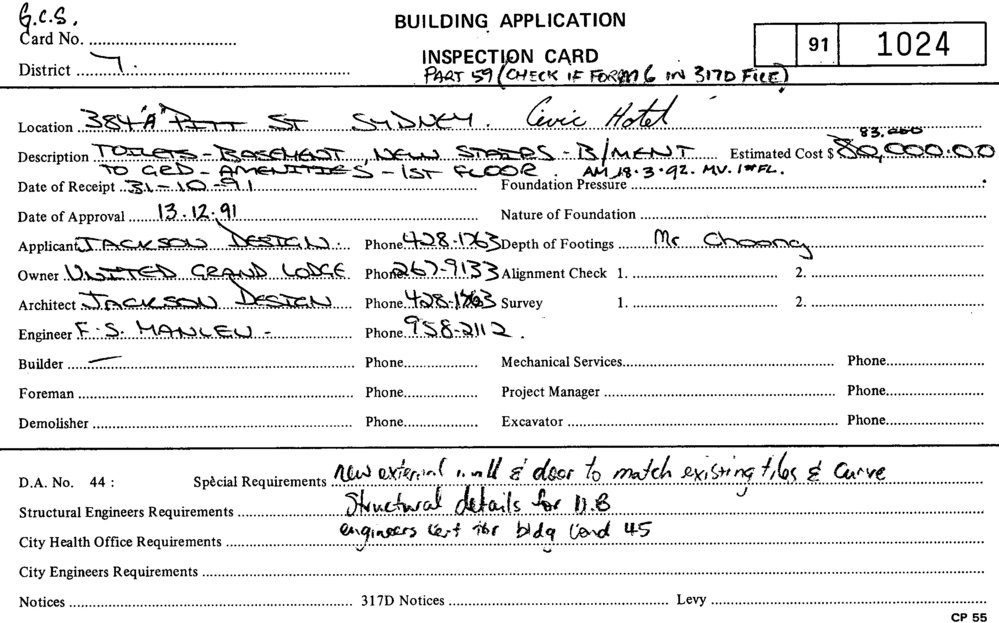 G.C.S.
BUILDING APPLICATION
Card No.
91 1024
INSPECTION CARD
District 7.
PART 59 (CHECK IF FORM 6 IN 317D FILE)
Location 384 "A" PITT ST SYDNEY. Civic Hotel
83,000
Description TOILETS - BASEMENT, NEW STAIRS - B/MENT Estimated Cost $ 80,000.00
TO GRD - AMENITIES - 1ST FLOOR. AM 18.3.92. MV. 1st FL.
Date of Receipt 31-10-91 Foundation Pressure
Date of Approval 13.12.91 Nature of Foundation
Applicant JACKSON DESIGN. Phone 428-1763 Depth of Footings Mr Choong
Owner UNITED GRAND LODGE Phone 267-9133 Alignment Check 1. 2.
Architect JACKSON DESIGN Phone 428-1763 Survey 1. 2.
Engineer F.S. MANLEU - Phone 958-2112.
Builder — Phone Mechanical Services Phone
Foreman Phone Project Manager Phone
Demolisher Phone Excavator Phone
D.A. No. 44 : Special Requirements New external wall & door to match existing tiles & Curve
Structural Engineers Requirements Structural details for D.B
City Health Office Requirements engineers Cert for bldg Cond 45
City Engineers Requirements
Notices 317D Notices Levy
CP 55